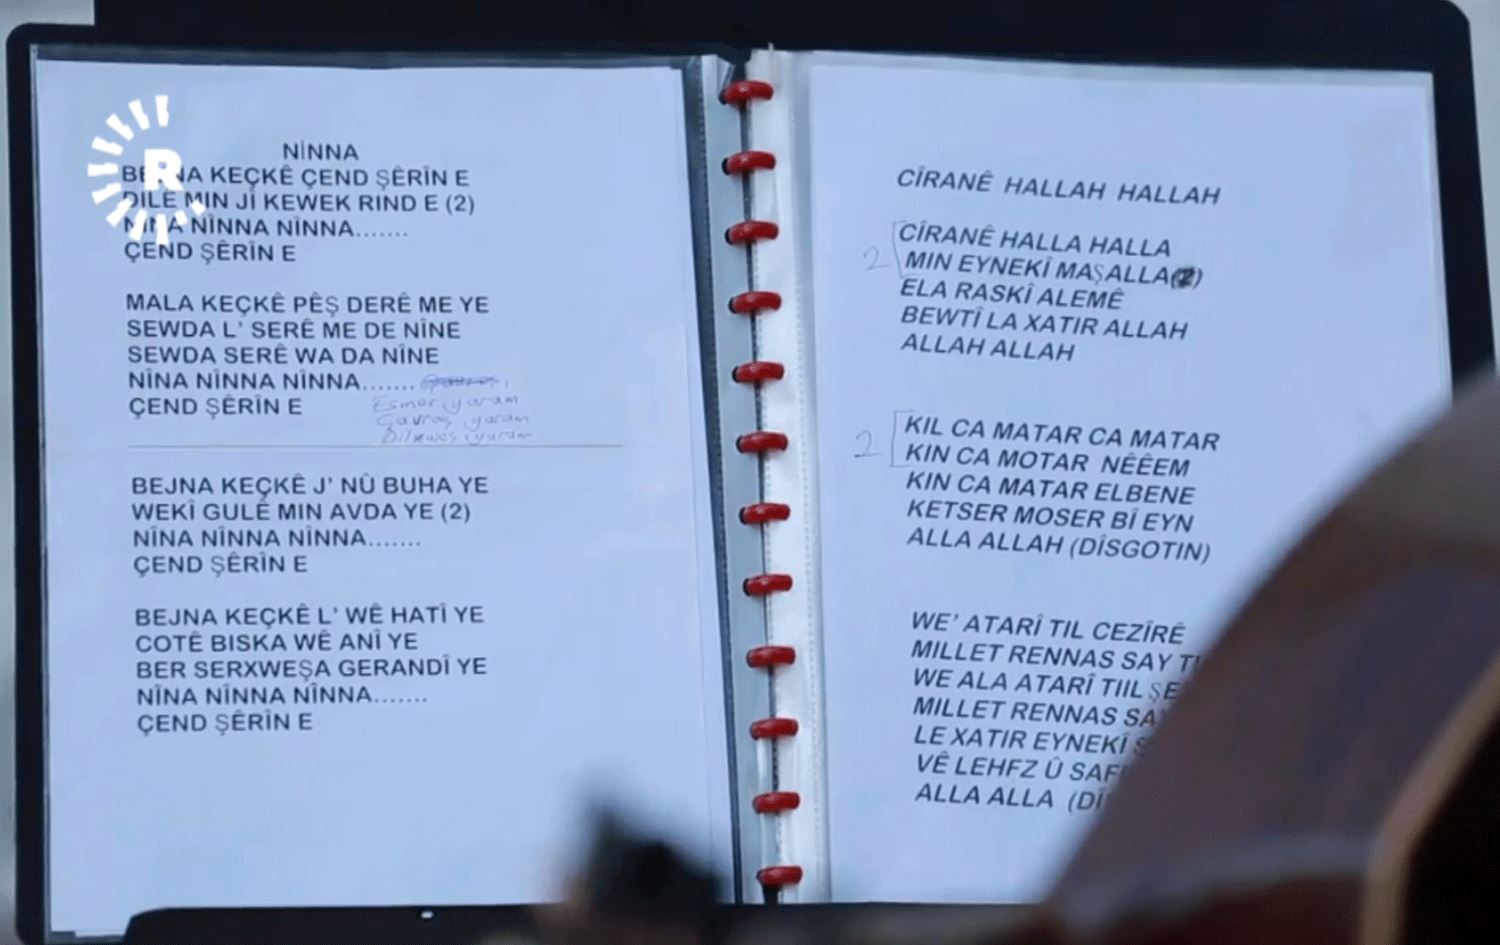 R
NİNNA
BEJNA KEÇKÊ ÇEND ŞÊRÎN E
DILÊ MIN JÎ KEWEK RIND E (2)
NÎNA NÎNNA NÎNNA.......
ÇEND ŞÊRÎN E
MALA KEÇKÊ PÊŞ DERÊ ME YE
SEWDA L' SERÊ ME DE NÎNE
SEWDA SERÊ WA DA NÎNE
NÎNA NÎNNA NÎNNA.......
ÇEND ŞÊRÎN E
Esmer yaram
Gavroş yaram
Dilxweş yaram
BEJNA KEÇKÊ J' NÛ BUHA YE
WEKÎ GULÊ MIN AVDA YE (2)
NÎNA NÎNNA NÎNNA.......
ÇEND ŞÊRÎN E
BEJNA KEÇKÊ L' WÊ HATÎ YE
COTÊ BISKA WÊ ANÎ YE
BER SERXWEŞA GERANDÎ YE
NÎNA NÎNNA NÎNNA.......
ÇEND ŞÊRÎN E
CÎRANÊ HALLAH HALLAH
CÎRANÊ HALLA HALLA
2 MIN EYNEKÎ MAŞALLA(2)
ELA RASKÎ ALEMÊ
BEWTÎ LA XATIR ALLAH
ALLAH ALLAH
KIL CA MATAR CA MATAR
2 KIN CA MOTAR NÊÊEM
KIN CA MATAR ELBENE
KETSER MOSER BÎ EYN
ALLA ALLAH (DÎSGOTIN)
WE' ATARÎ TIL CEZÎRÊ
MILLET RENNAS SAY
WE ALA ATARÎ TIIL
MILLET RENNAS
LE XATIR EYNEKÎ
VÊ LEHFZ Û
ALLA ALLA